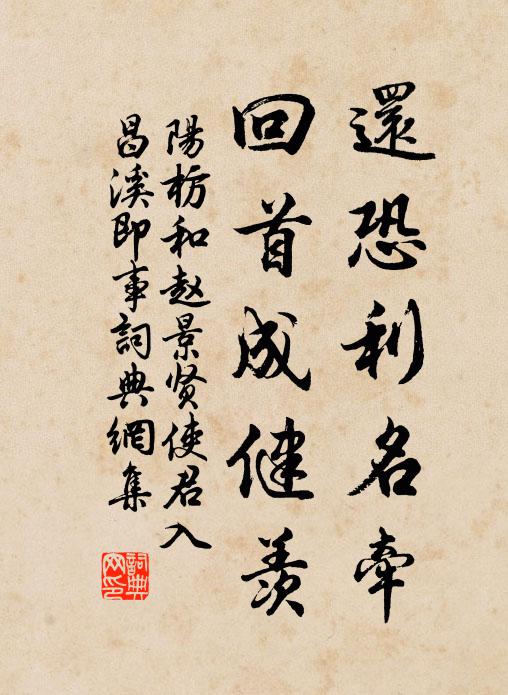 還恐利名牽
回首成健羨
陽枋和赵景贤使君入
昌溪即事詞典網集
詞典网印